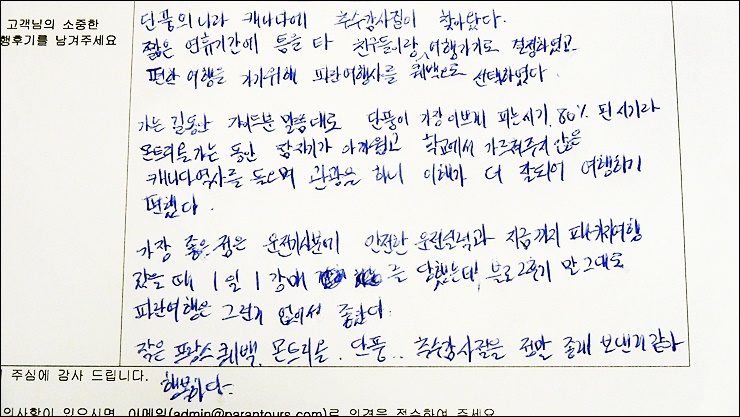 고객님의 소중한
행후기를 남겨주세요
단풍의 나라 캐나다에 추수감사절이 찾아왔다.
짧은 연휴기간에 틈을 타 친구들이랑 여행가기로 결정하였고
편한 여행을 가기위해 파란여행사를 퀘백으로 선택하였다.
가는 길동안 가이드분 말씀대로 단풍이 가장 이쁘게 피는시기, 80% 핀 시기라
몬트리올 가는 동안 잠자기가 아까웠고 학교에서 가르쳐주지 않은
캐나다역사를 들으며 관광을 하니 이해가 더 잘되어 여행하기
편했다.
가장 좋은 점은 운전기사분에 안전한 운전실력과 지금까지 패키지여행
갔을 때 1일 1강매 를 당했는데, 블로그후기 만 그대로
파란여행은 그런게 없어서 좋았다.
작은 프랑스 퀘백, 몬트리올, 단풍.. 추수감사절을 정말 좋게 보낸거 같아
행복하다.
주심에 감사 드립니다.
의사항이 있으시면, 이메일(admin@parantours.com)로 의견을 접수하여 주세요